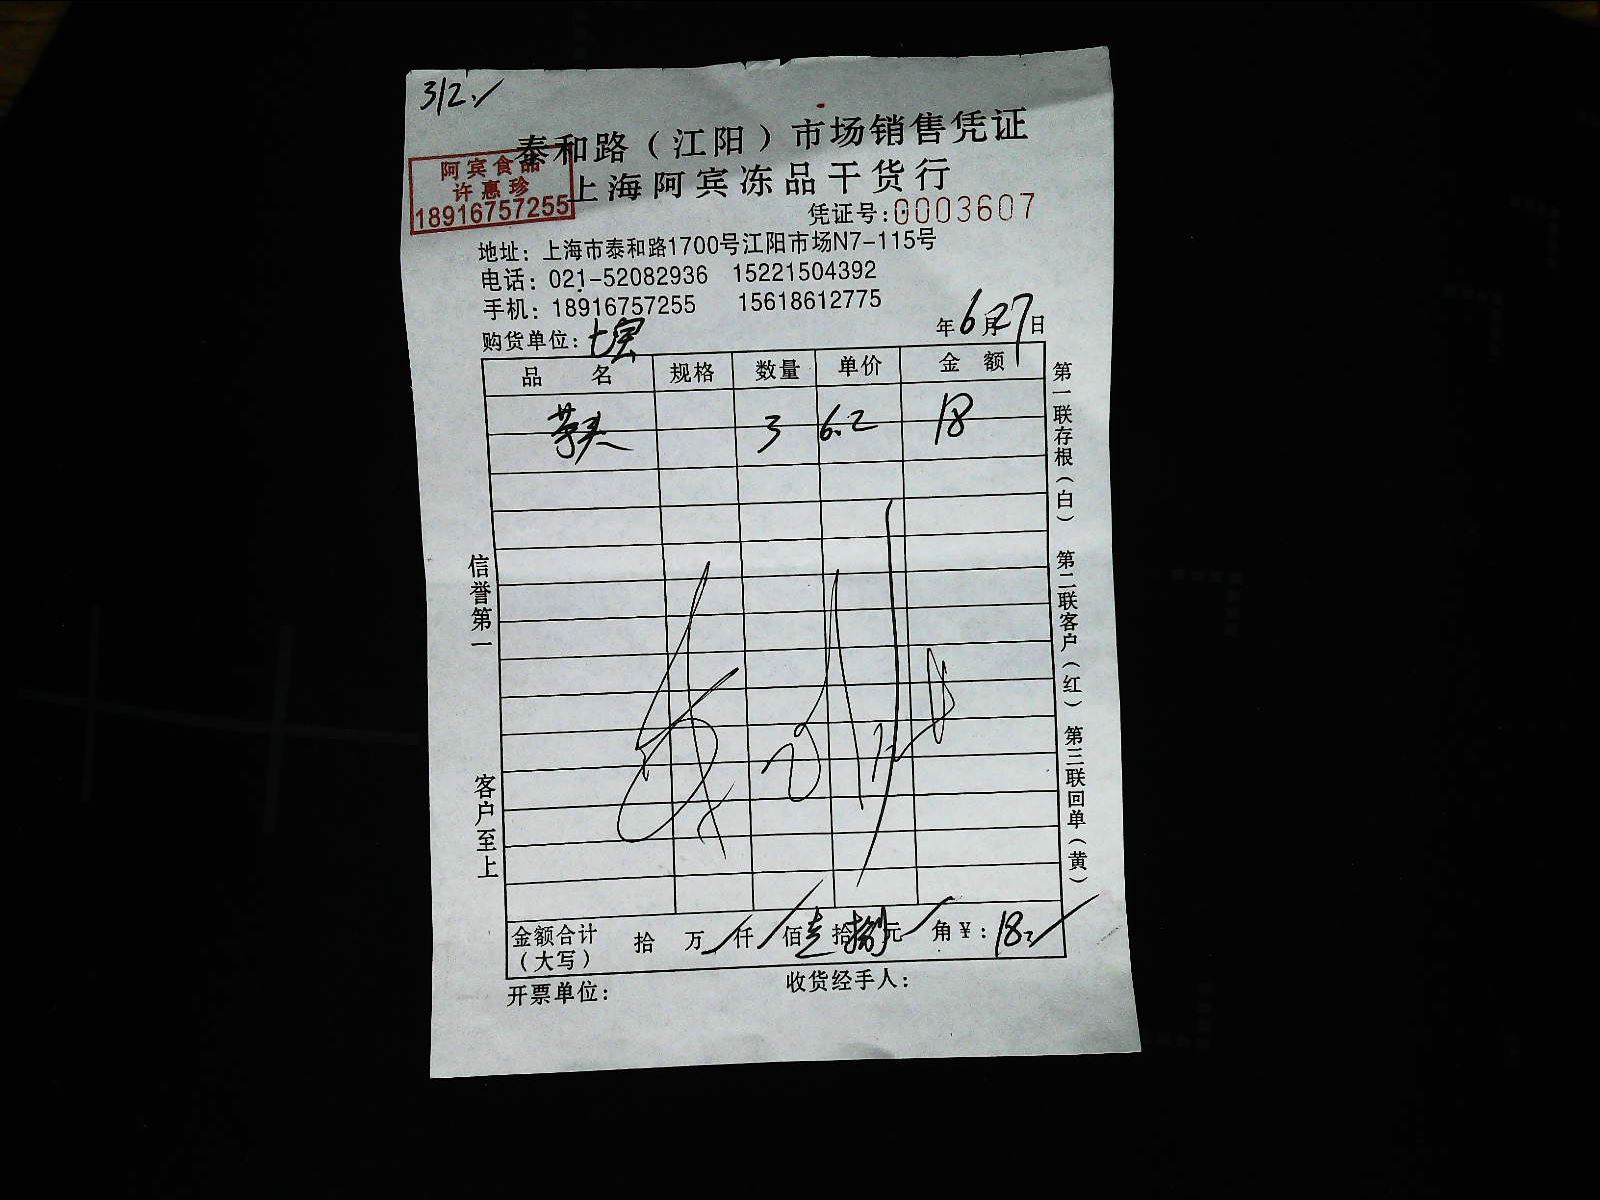 312./
泰和路（江阳）市场销售凭证
上海阿宾冻品干货行
阿宾食品
许惠珍
18916757255
凭证号:0003607
地址：上海市泰和路1700号江阳市场N7-115号
电话：021-52082936 15221504392
手机：18916757255 15618612775
购货单位：七宝
年6月27日
品 名 规格 数量 单价 金 额
芋头 3 6.2 18
信誉第一
客户至上
第一联存根（白） 第二联客户（红） 第三联回单（黄）
金额合计（大写） 拾 万 仟 佰壹拾捌元 角 ¥：18
开票单位：
收货经手人：